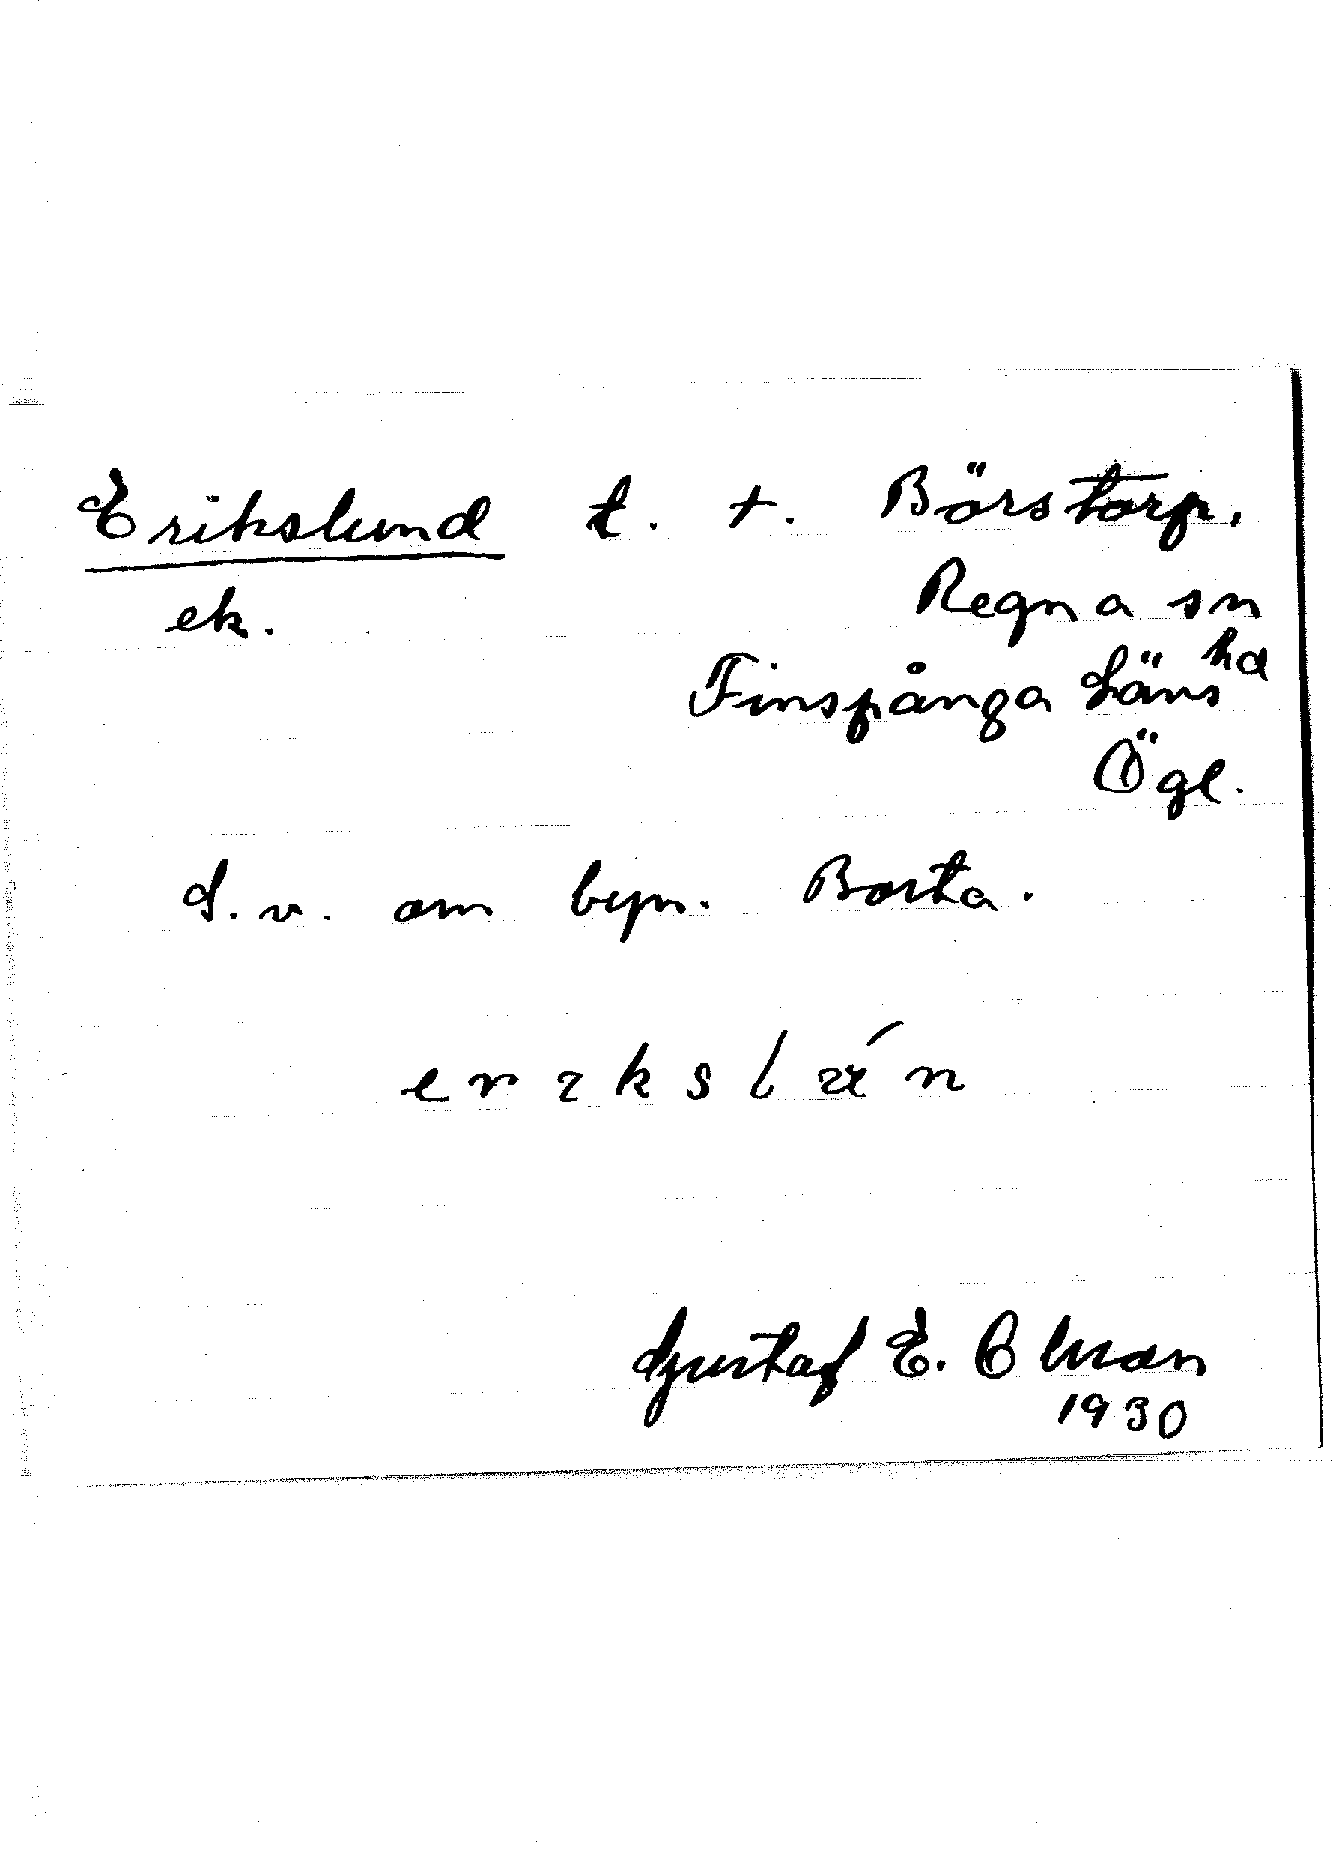 Erikslund t. t. Börstorp.
ek. Regna sn
Finspånga Läns hd
Ögl.
S.v. om byn. Borta.
erikslun
Gustaf E. Olsson
1930